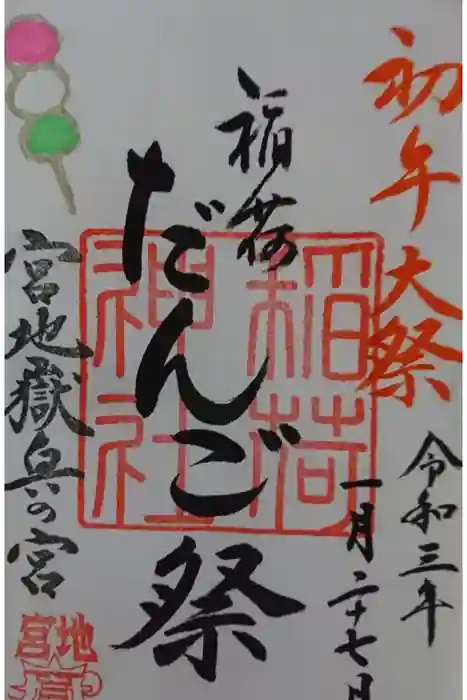 初午大祭
令和三年
一月二十七日
稲荷
だんご祭
稲荷
神社
宮地嶽奥の宮
宮地